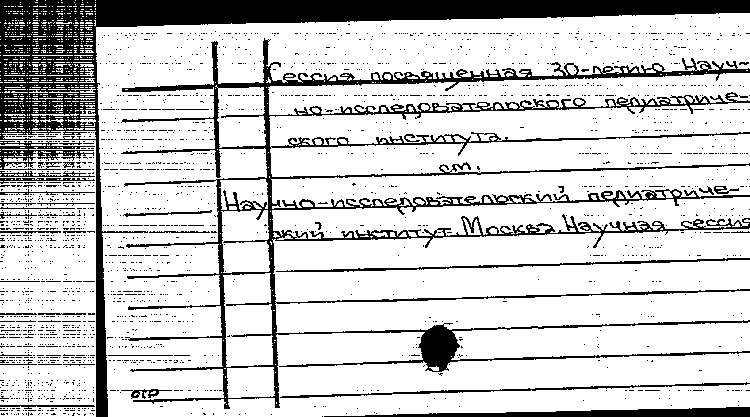 Сессия, посвященная 30-летию Науч-
но-исследовательского педиатриче-
ского института.
см.
Научно-исследовательский педиатриче-
ский институт. Москва. Научная сессия